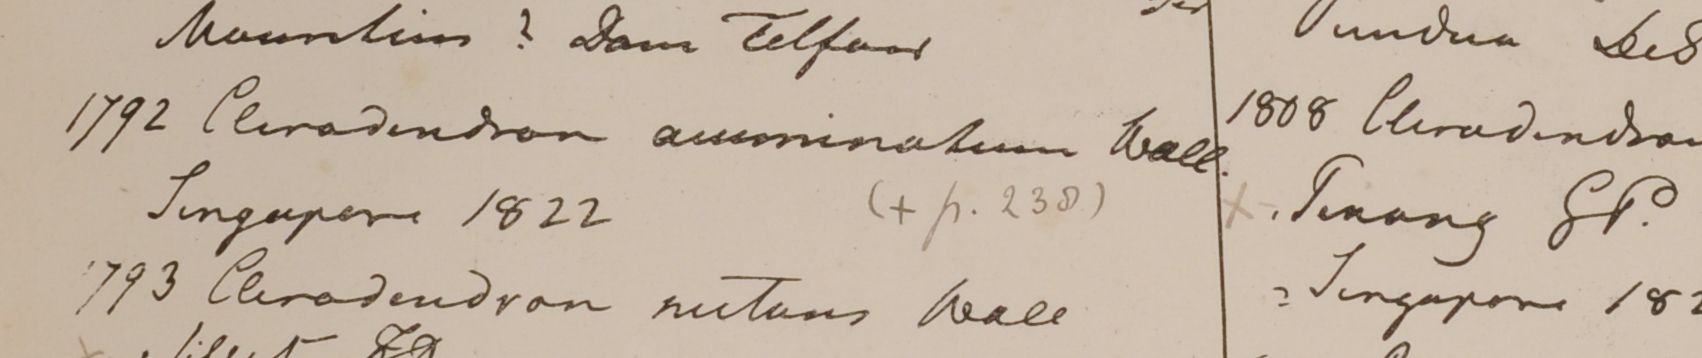 Mauritius ? Dom Telfair
1792 Clerodendron acuminatum Wall.
Singapore 1822 (+ p. 238)
1793 Clerodendron nutans Wall
Silhet FD
Pundua DeS
1808 Clerodendron
x . Penang GP.
Singapore 182